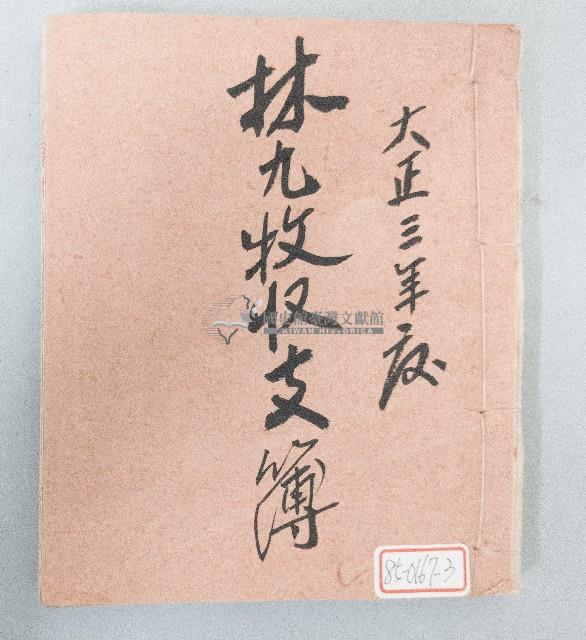 大正三年度
林九牧収支簿
國史館臺灣文獻館
TAIWAN HISTORICA
85-0167-3